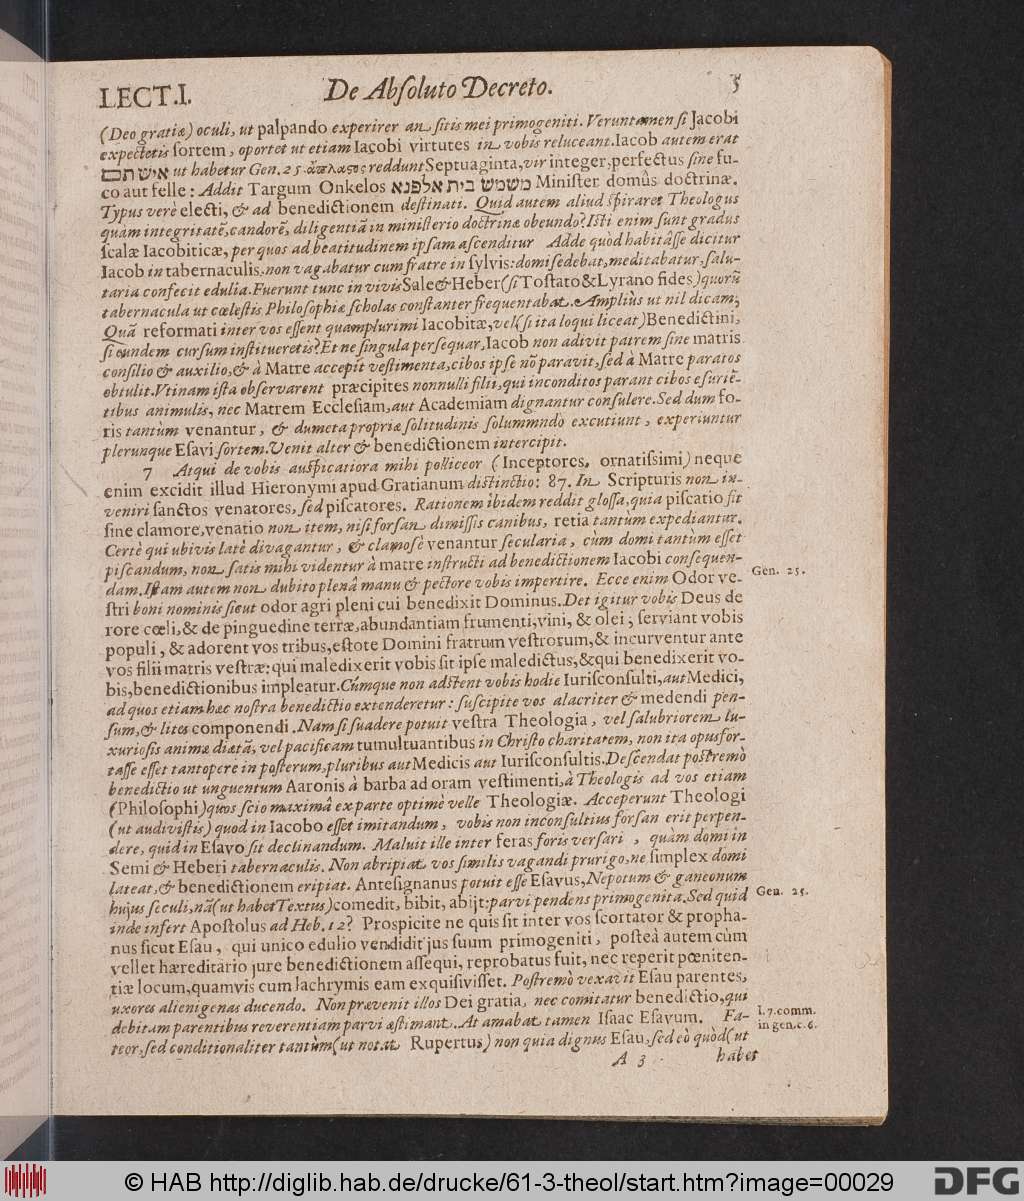 LECT.I. De Abſoluto Decreto. 5
(Deo gratiæ) oculi, ut palpando experirer an ſitis mei primogeniti. Veruntamen ſi Jacobi
expectetis ſortem, oportet ut etiam Iacobi virtutes in vobis reluceant. Iacob autem erat
איש תם ut habetur Gen. 25. ἄπλαςος reddunt Septuaginta, vir integer, perfectus ſine fu-
co aut felle: Addit Targum Onkelos משמש בית אלפנא Miniſter domûs doctrinæ.
Typus verè electi, & ad benedictionem deſtinati. Quid autem aliud ſpiraret Theologus
quàm integritatē, candorē, diligentiā in miniſterio doctrinæ obeundo? Iſti enim ſunt gradus
ſcalæ Iacobiticæ, per quos ad beatitudinem ipſam aſcenditur Adde quòd habitâſſe dicitur
Iacob in tabernaculis, non vagabatur cum fratre in ſylvis: domi ſedebat, meditabatur, ſalu-
taria confecit edulia. Fuerunt tunc in vivis Sale & Heber (ſi Toſtato & Lyrano fides) quorū
tabernacula ut cœleſtis Philoſophiæ ſcholas conſtanter frequentabat. Ampliùs ut nil dicam;
Quā reformati inter vos eſſent quamplurimi Iacobitæ, vel (ſi ita loqui liceat) Benedictini,
ſi eundem curſum inſtitueretis? Et ne ſingula perſequar, Iacob non adivit patrem ſine matris
conſilio & auxilio, & à Matre accepit veſtimenta, cibos ipſe nō paravit, ſed à Matre paratos
obtulit. Vtinam iſta obſervarent præcipites nonnulli filii, qui inconditos parant cibos eſuriē-
tibus animulis, nec Matrem Eccleſiam, aut Academiam dignantur conſulere. Sed dum fo-
ris tantùm venantur, & dumeta propriæ ſolitudinis ſolummndò excutiunt, experiuntur
plerunque Eſavi ſortem. Venit alter & benedictionem intercipit.
7 Atqui de vobis auſpicatiora mihi polliceor (Inceptores, ornatiſsimi) neque
enim excidit illud Hieronymi apud Gratianum diſtinctio: 87. In Scripturis non in-
veniri ſanctos venatores, ſed piſcatores. Rationem ibidem reddit gloſſa, quia piſcatio ſit
ſine clamore, venatio non item, niſi forſan dimiſſis canibus, retia tantùm expediantur.
Certè qui ubivis latè divagantur, & clamosè venantur ſecularia, cùm domi tantùm eſſet
piſcandum, non ſatis mihi videntur à matre inſtructi ad benedictionem Iacobi conſequen-
dam. Iſtam autem non dubito plenâ manu & pectore vobis impertire. Ecce enim Odor ve-
Gen. 25.
ſtri boni nominis ſicut odor agri pleni cui benedixit Dominus. Det igitur vobis Deus de
rore cœli, & de pinguedine terræ, abundantiam frumenti, vini, & olei; ſerviant vobis
populi, & adorent vos tribus, eſtote Domini fratrum veſtrorum, & incurventur ante
vos filii matris veſtræ: qui maledixerit vobis ſit ipſe maledictus, & qui benedixerit vo-
bis, benedictionibus impleatur. Cúmque non adſtent vobis hodie Iuriſconſulti, aut Medici,
ad quos etiam hæc noſtra benedictio extenderetur: ſuſcipite vos alacriter & medendi pen-
ſum, & lites componendi. Nam ſi ſuadere potuit veſtra Theologia, vel ſalubriorem lu-
xurioſis animæ diætā, vel pacificam tumultuantibus in Chriſto charitatem, non ita opus for-
taſſe eſſet tantopere in poſterum, pluribus aut Medicis aut Iuriſconſultis. Deſcendat poſtremò
benedictio ut unguentum Aaronis à barba ad oram veſtimenti, à Theologis ad vos etiam
(Philoſophi) quos ſcio maximâ ex parte optimè velle Theologiæ. Acceperunt Theologi
(ut audiviſtis) quod in Iacobo eſſet imitandum, vobis non inconſultius forſan erit perpen-
dere, quid in Eſavo ſit declinandum. Maluit ille inter feras foris verſari, quàm domi in
Semi & Heberi tabernaculis. Non abripiat vos ſimilis vagandi prurigo, ne ſimplex domi
lateat, & benedictionem eripiat. Anteſignanus potuit eſſe Eſavus, Nepotum & ganeonum
hujus ſeculi, nā (ut habet Textus) comedit, bibit, abijt: parvi pendens primogenita. Sed quid
Gen. 25.
inde infert Apoſtolus ad Heb. 12? Proſpicite ne quis ſit inter vos ſcortator & propha-
nus ſicut Eſau, qui unico edulio vendidit jus ſuum primogeniti, poſteà autem cùm
vellet hæreditario jure benedictionem aſſequi, reprobatus fuit, nec reperit pœniten-
tiæ locum, quamvis cum lachrymis eam exquiſiviſſet. Poſtremò vexavit Eſau parentes,
uxores alienigenas ducendo. Non prævenit illos Dei gratia, nec comitatur benedictio, qui
debitam parentibus reverentiam parvi æſtimant. At amabat tamen Iſaac Eſavum. Fa-
teor, ſed conditionaliter tantùm (ut notat Rupertus) non quia dignus Eſau, ſed eò quòd (ut
I. 7. comm.
in gen. c. 6.
A 3 habet
© HAB http://diglib.hab.de/drucke/61-3-theol/start.htm?image=00029
DFG